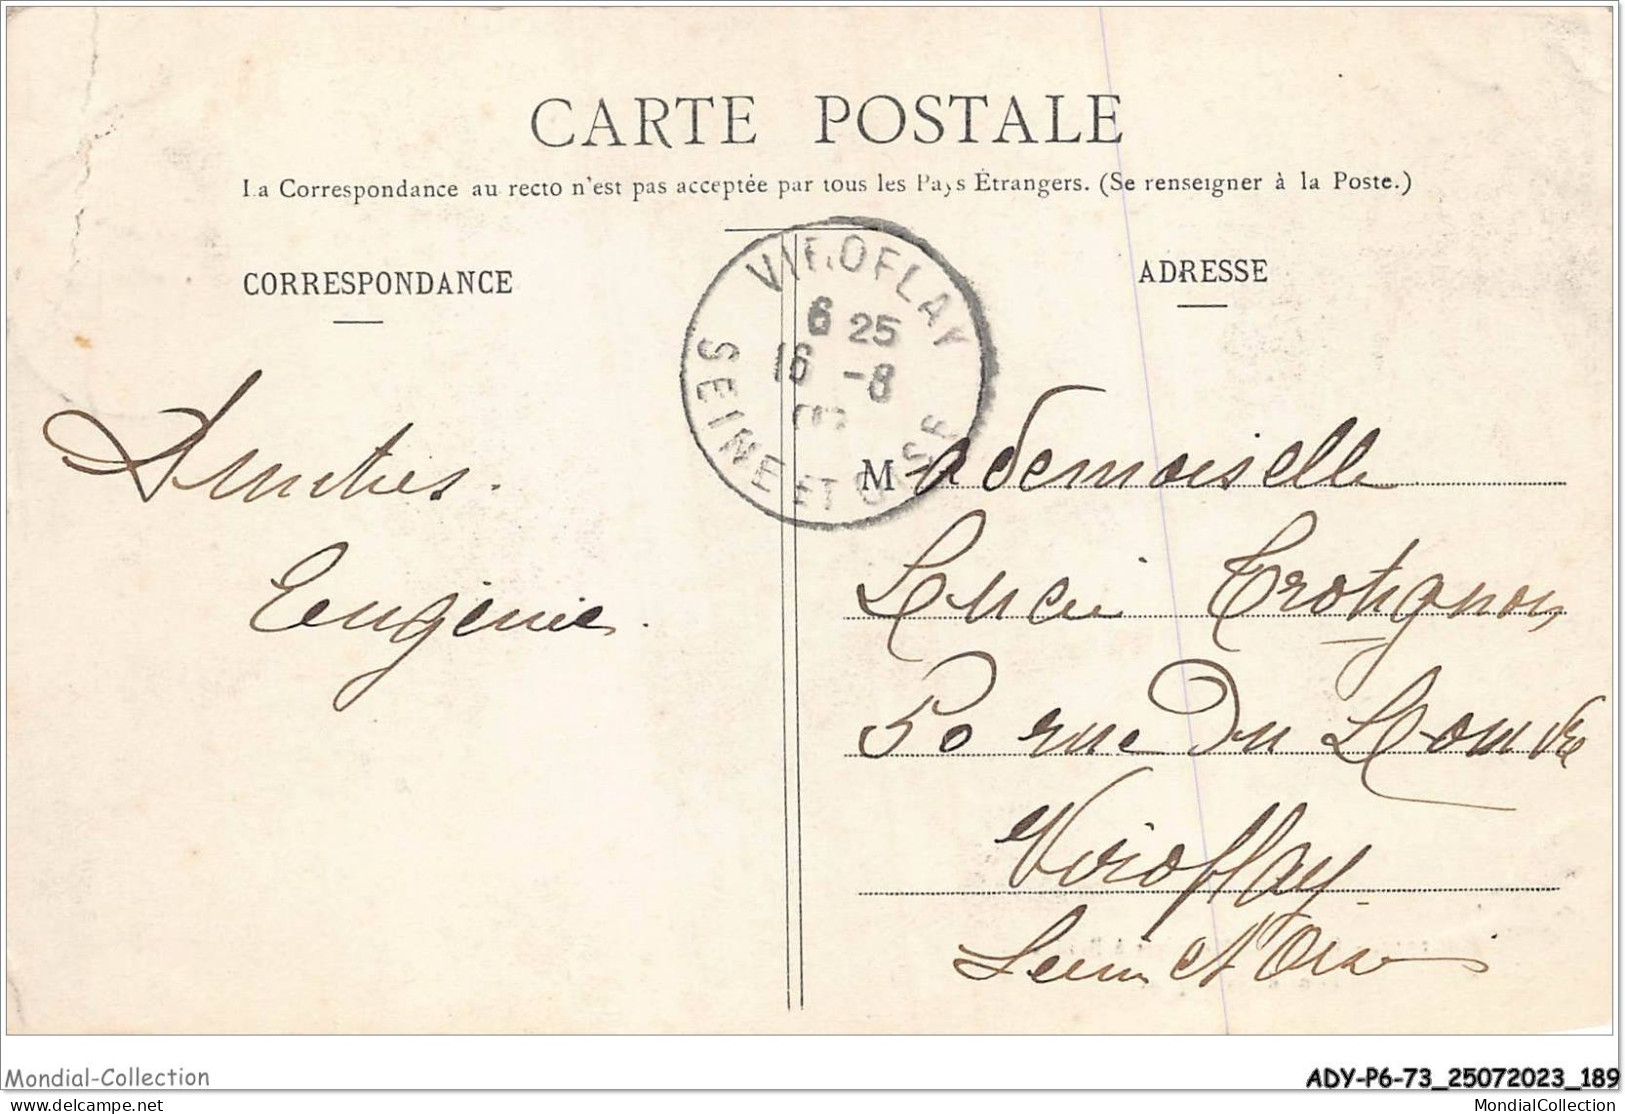 CARTE POSTALE
La Correspondance au recto n'est pas acceptée par tous les Pays Étrangers. (Se renseigner à la Poste.)
CORRESPONDANCE
ADRESSE
VIROFLAY
6 25
16 -8
SEINE ET OISE
Amitiés.
Eugénie.
Mademoiselle
Lucie Trotignon
50 rue Du Louvre
Viroflay
Seine et Oise
Mondial-Collection
ADY-P6-73_25072023_189
delcampe.net
MondialCollection